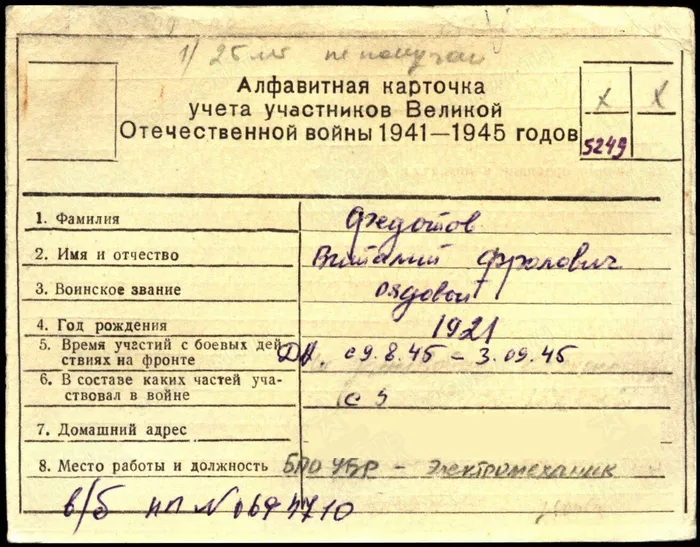 1/ 25 лет не получал
Алфавитная карточка
учета участников Великой
Отечественной войны 1941—1945 годов
X X
5249
1. Фамилия Федотов
2. Имя и отчество Виталий Фролович
3. Воинское звание рядовой
4. Год рождения 1921
5. Время участий с боевых дей
ствиях на фронте ДВ. с 9.8.45 – 3.09.45
6. В составе каких частей уча-
ствовал в войне
7. Домашний адрес
8. Место работы и должность БПО УБР – электромеханик
в/б НП №